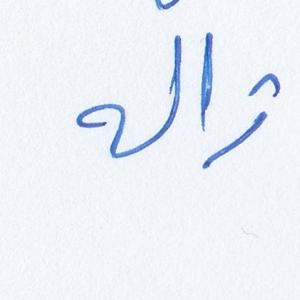 ژاله